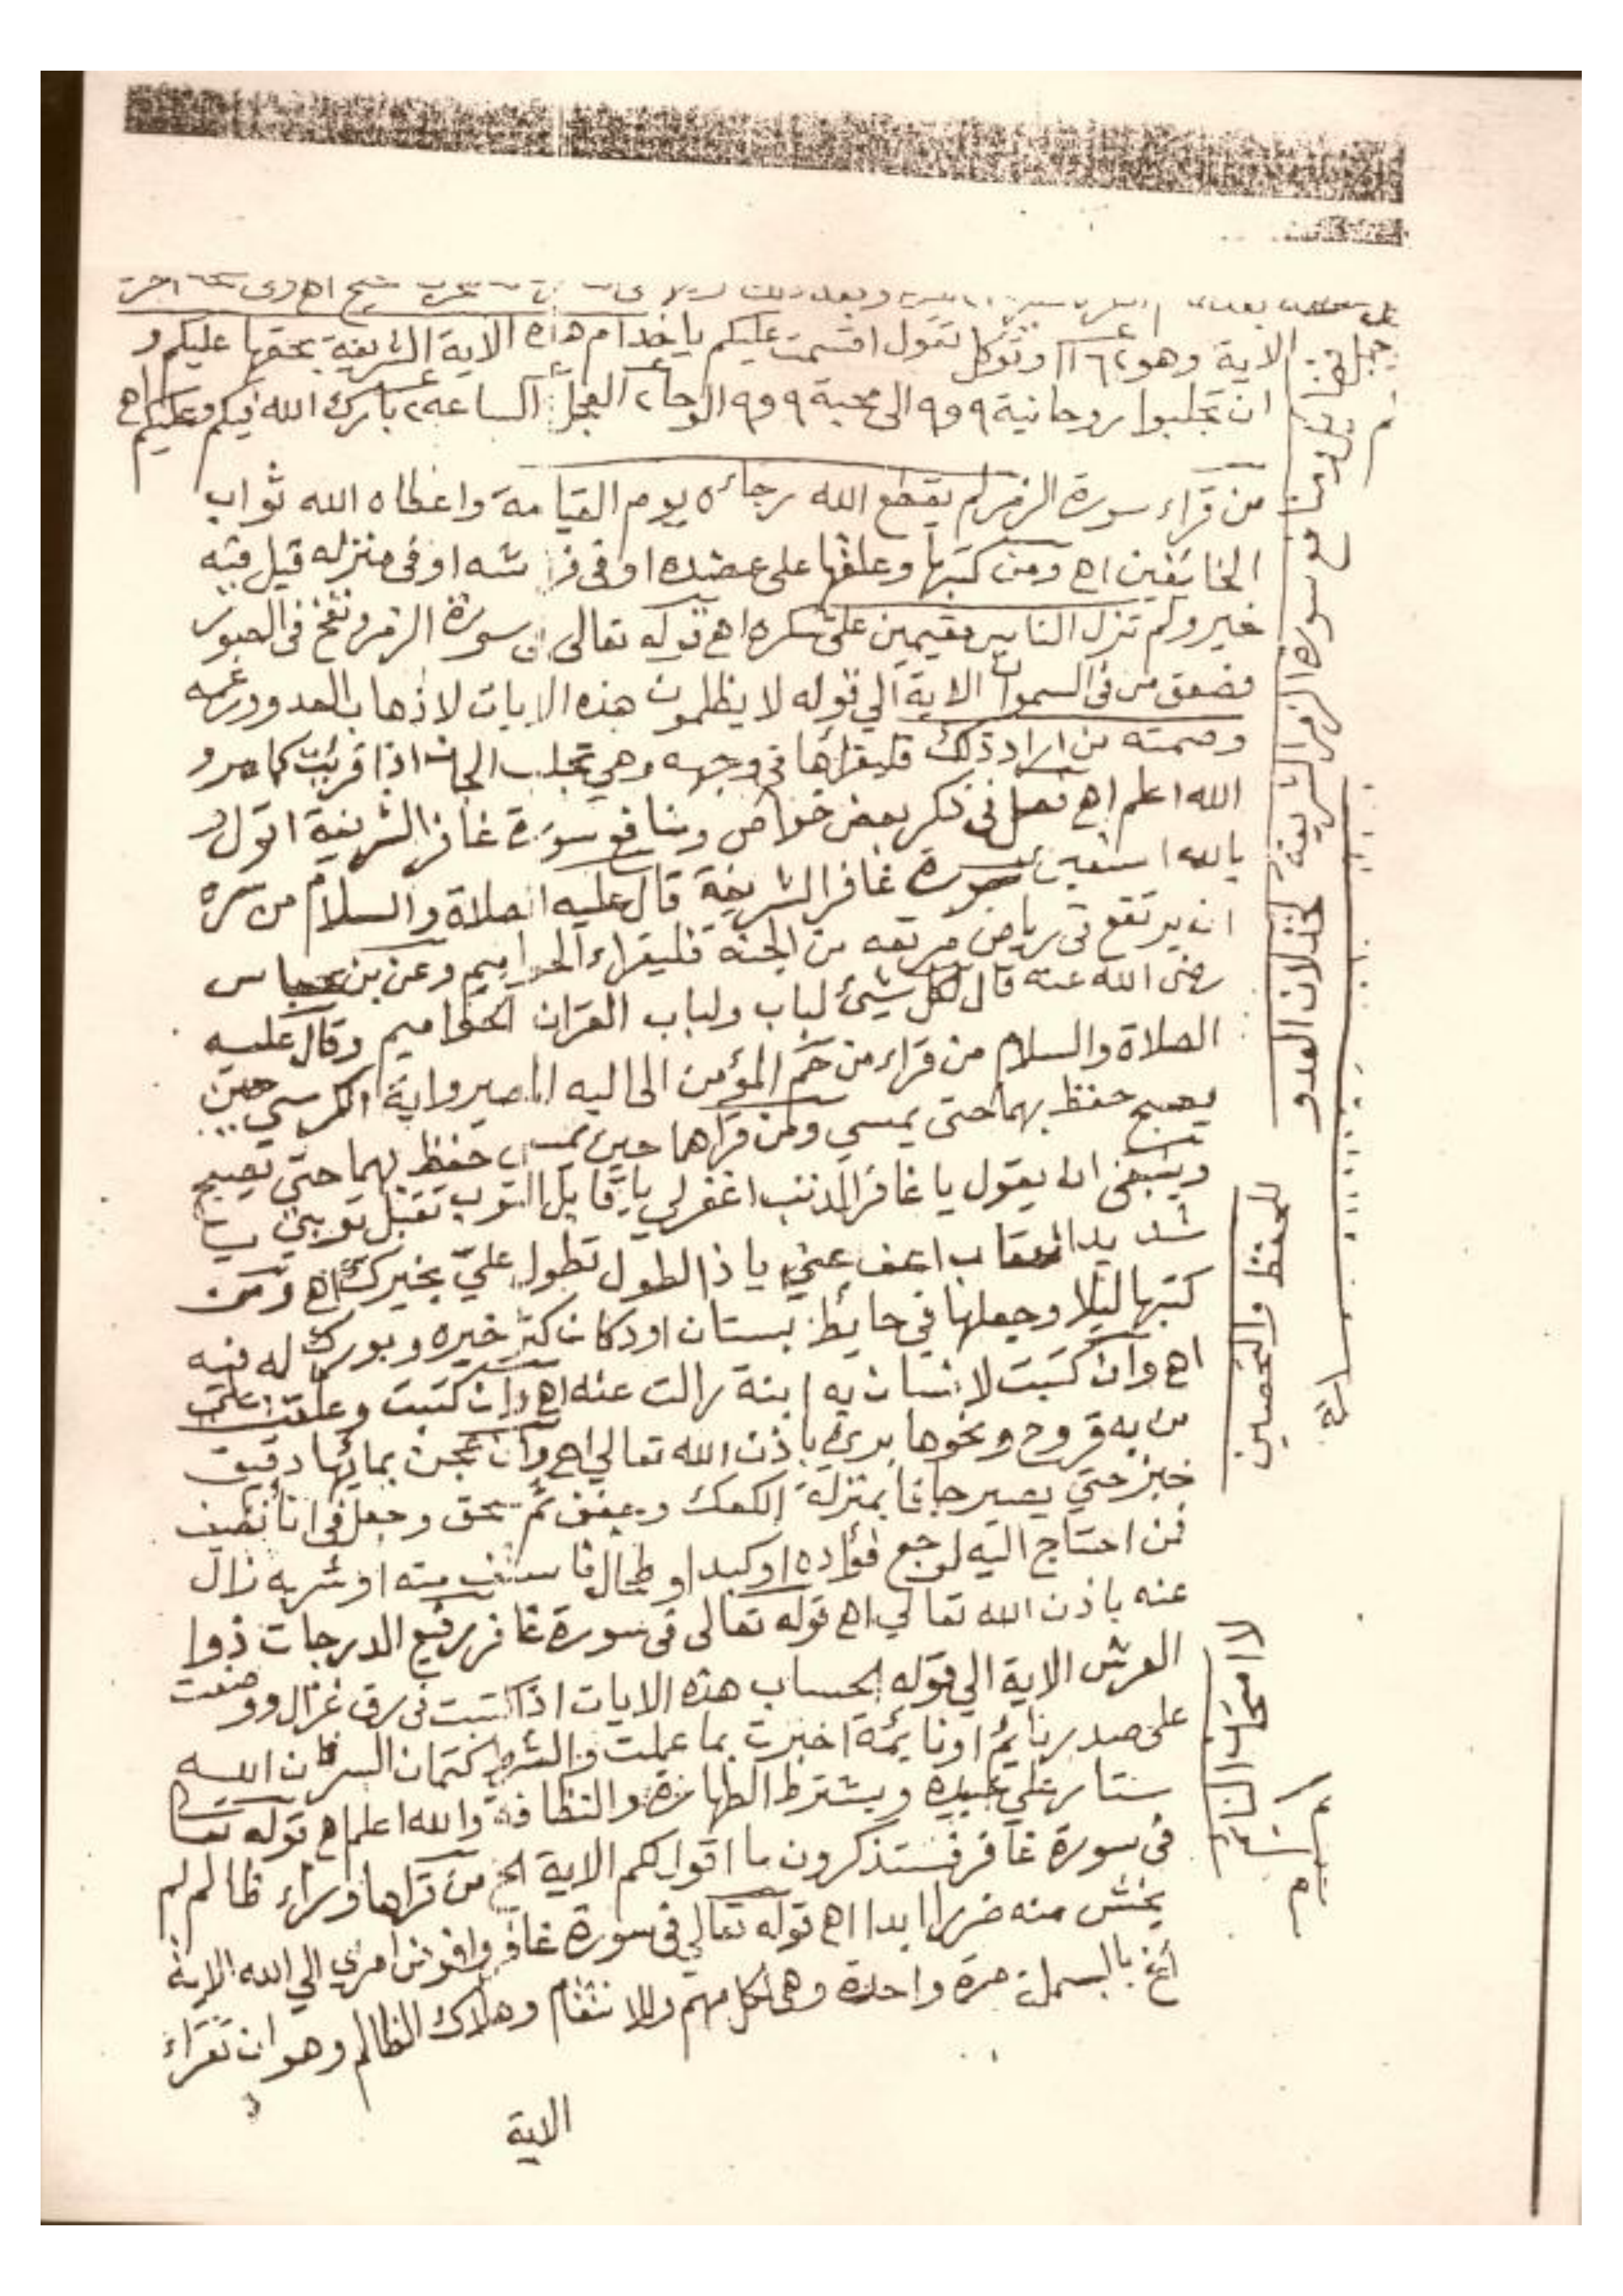 الاية وهو ٦٢ وتوكل تقول اقسمت عليكم ياخدام هذه الاية الشريفة بحقها عليكم و
ان تجلبوا روحانية ٩ و ٩ الى محبة ٩ و ٩ الوحا٢ العجل٢ الساعه٢ بارك الله فيكم وعليكم اهـ
من قراء سورة الزمر لم يقطع الله رجائه يوم القيامة واعطاه الله ثواب
الخائفين اهـ ومن كتبها وعلقها على عضده او في فراشه او في منزله قيل فيه
خير ولم تزل الناس مقيمين على شكره اهـ قوله تعالى في سورة الزمر ونفخ في الصور
فصعق من في السموات الاية الي قوله لا يظلمون هذه الايات لاذهاب العدو ورغمه
وصمته من اراد ذلك فليقراها في وجهه وهي تجلب الجان اذا قريت كما مر و
الله اعلم اهـ فصل في ذكر بعض خواص ومنافع سورة غافر الشريفة اقول و
بالله استعين سورة غافر الشريفة قال عليه الصلاة والسلام من سره
ان يرتقع في رياض مرتعه من الجنة فليقراء الحواميم وعن بن عباس
رضى الله عنه قال لكل شيئ لباب ولباب القران الحواميم وقال عليه
الصلاة والسلام من قراء من حم المؤمن الى اليه المصير واية الكرسي حين
يصبح حفظ بهما حتى يمسي ومن قراهما حين يمسى حفظ بهما حتي يصبح
وينبغى ان يقول يا غافر الذنب اغفر لي يا قابل التوب تقبل توبتي يا
شديد العقاب اعف عني يا ذا الطول تطول علي بخيرك اهـ ومن
كتبها ليلا وجعلها في حايط بستان او دكان كثر خيره وبورك له فيه
اهـ وان كتبت لانسان به ابنة زالت عنه اهـ وان كتبت وعلقت على
من به قروح ونحوها برئ باذن الله تعالي اهـ وان عجن بمائها دقيق
خبز حتي يصير جافا بمنزلة الكعك ويجفف ثم يسحق وجعل في انا نظيف
فمن احتاج اليه لوجع فؤاده او كبد او طحال فاستف منه او شربه زال
عنه باذن الله تعالي اهـ قوله تعالى في سورة غافر رفيع الدرجات ذوا
العرش الاية الي قوله الحساب هذه الايات اذا كتبت في رق غزال ووضعت
على صدر نايم او نايمة اخبرت بما عملت والشرط كتمان السر فان الله
ستار علي عبيده ويشترط الطهارة والنظافة والله اعلم اهـ قوله تعالى
في سورة غافر فستذكرون ما اقول لكم الاية الخ من قراها وراء ظالم لم
يخش منه ضررا ابدا اهـ قوله تعالي في سورة غافر وافوض امري الي الله الاية
الخ بالبسملة مرة واحدة وهي لكل مهم وللانتقام وهلاك الظالم وهو ان تقراء
الاية
منافع سورة الزمر الشريفة لخذلان العدو
للحفظ والتحصين
النائم